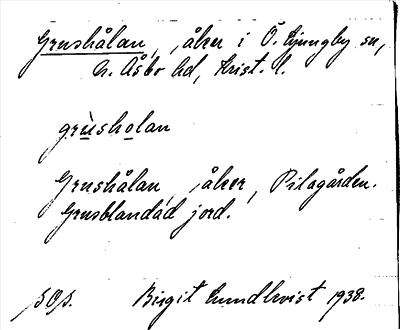 Grushålan, åker i Ö. Ljungby sn,
N. Åsbo hd, Krist. l.
grùsholan
Grushålan, åker, Pilagården.
Grusblandad jord.
Birgit Lundkvist 1938.